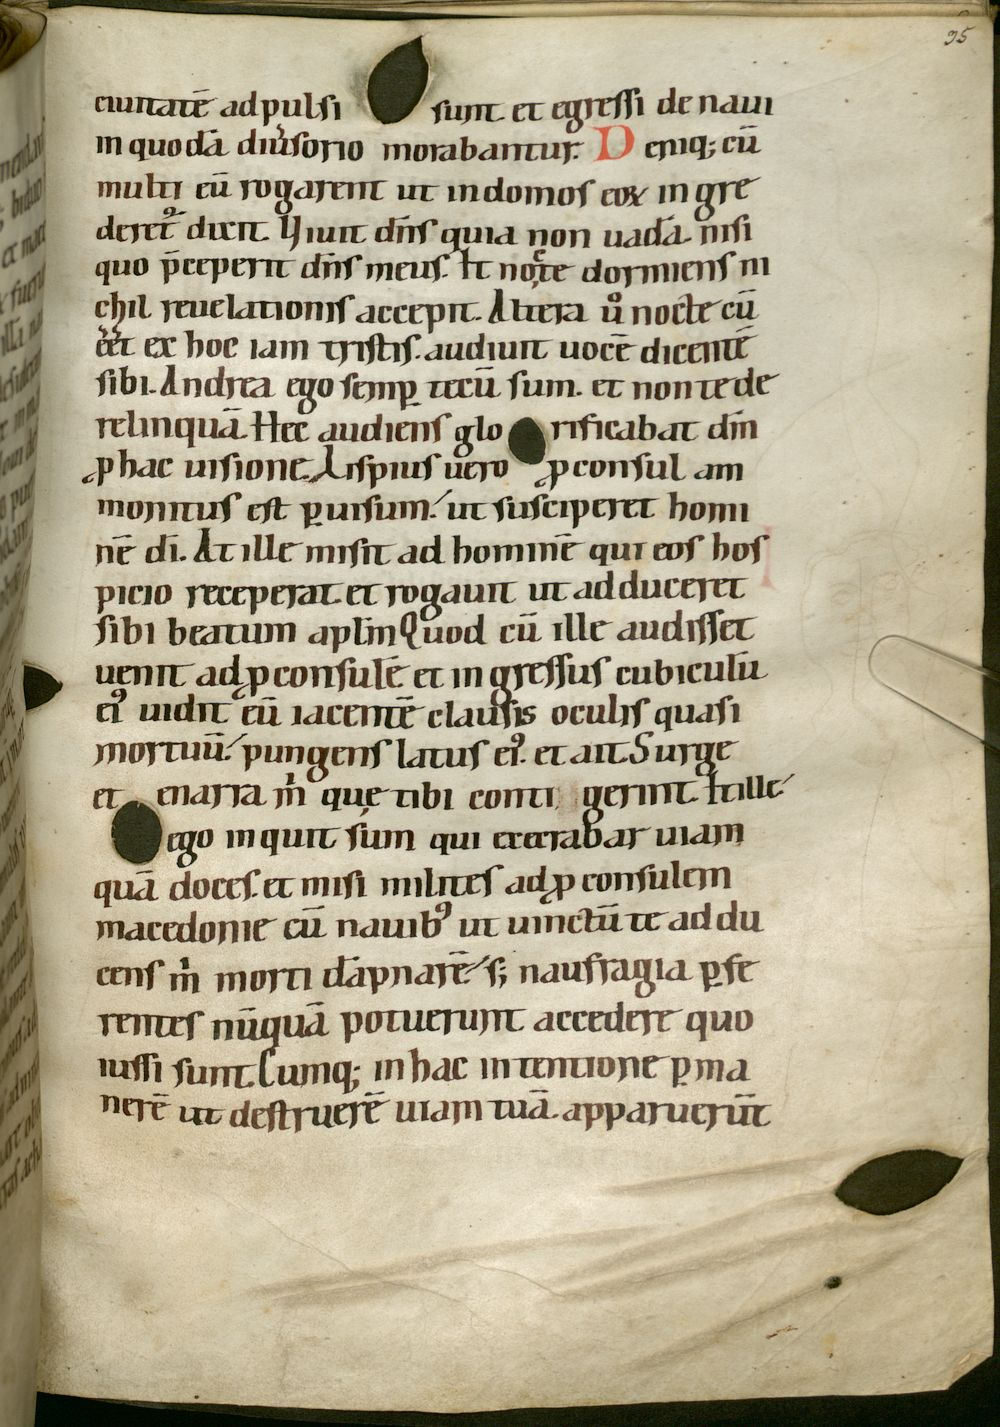 95
ciuitatē adpulsi sunt et egressi de naui
in quodā diu̾sorio morabantur. Deniq; cū
multi cū rogarent ut in domos eoꝝ ingre
deret᷒ dixit. Viuit dn̄s quia non uadā nisi
quo p̄ceperit dn̄s meus. Et nocte dormiens ni
chil reuelationis accepit. Altera ů nocte cū
eēt ex hoc iam tristis. audiuit uocē dicentē
sibi. Andrea ego semꝑ tecū sum. et non te de
relinquā. Hec audiens glorificabat dn̄m
ꝓ hac uisione. Lispius uero ꝓconsul am
monitus est ꝑ uisum. ut susciperet homi
nē dī. At ille misit ad hominē qui eos hos
picio receperat. et rogauit ut adduceret
sibi beatum apl̄m. Quod cū ille audisset
uenit ad ꝓconsulē et ingressus cubiculū
eiꝰ uidit eū iacentē clausis oculis quasi
mortuū. pungens latus eiꝰ. et ait. Surge
et enarra m̄ quę tibi contigerint. Et ille
ego inquit sum qui execrabar uiam
quā doces. et misi milites ad ꝓconsulem
macedonie cū nauibꝰ ut uinctū te addu
cens m̄ morti dāpnarē. s; naufragia ꝑfe
rentes nūquā potuerunt accedere quo
iussi sunt. Cumq; in hac intentione ꝑma
nerē ut destruerē uiam tuā. apparuerūt